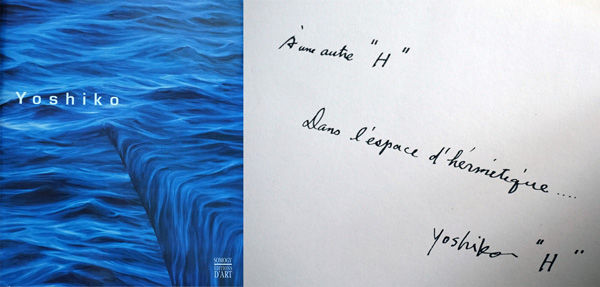 Yoshiko
SOMOGY
EDITIONS
D'ART
À une autre "H"
Dans l'éspace d'hérmétique.....
Yoshiko "H"